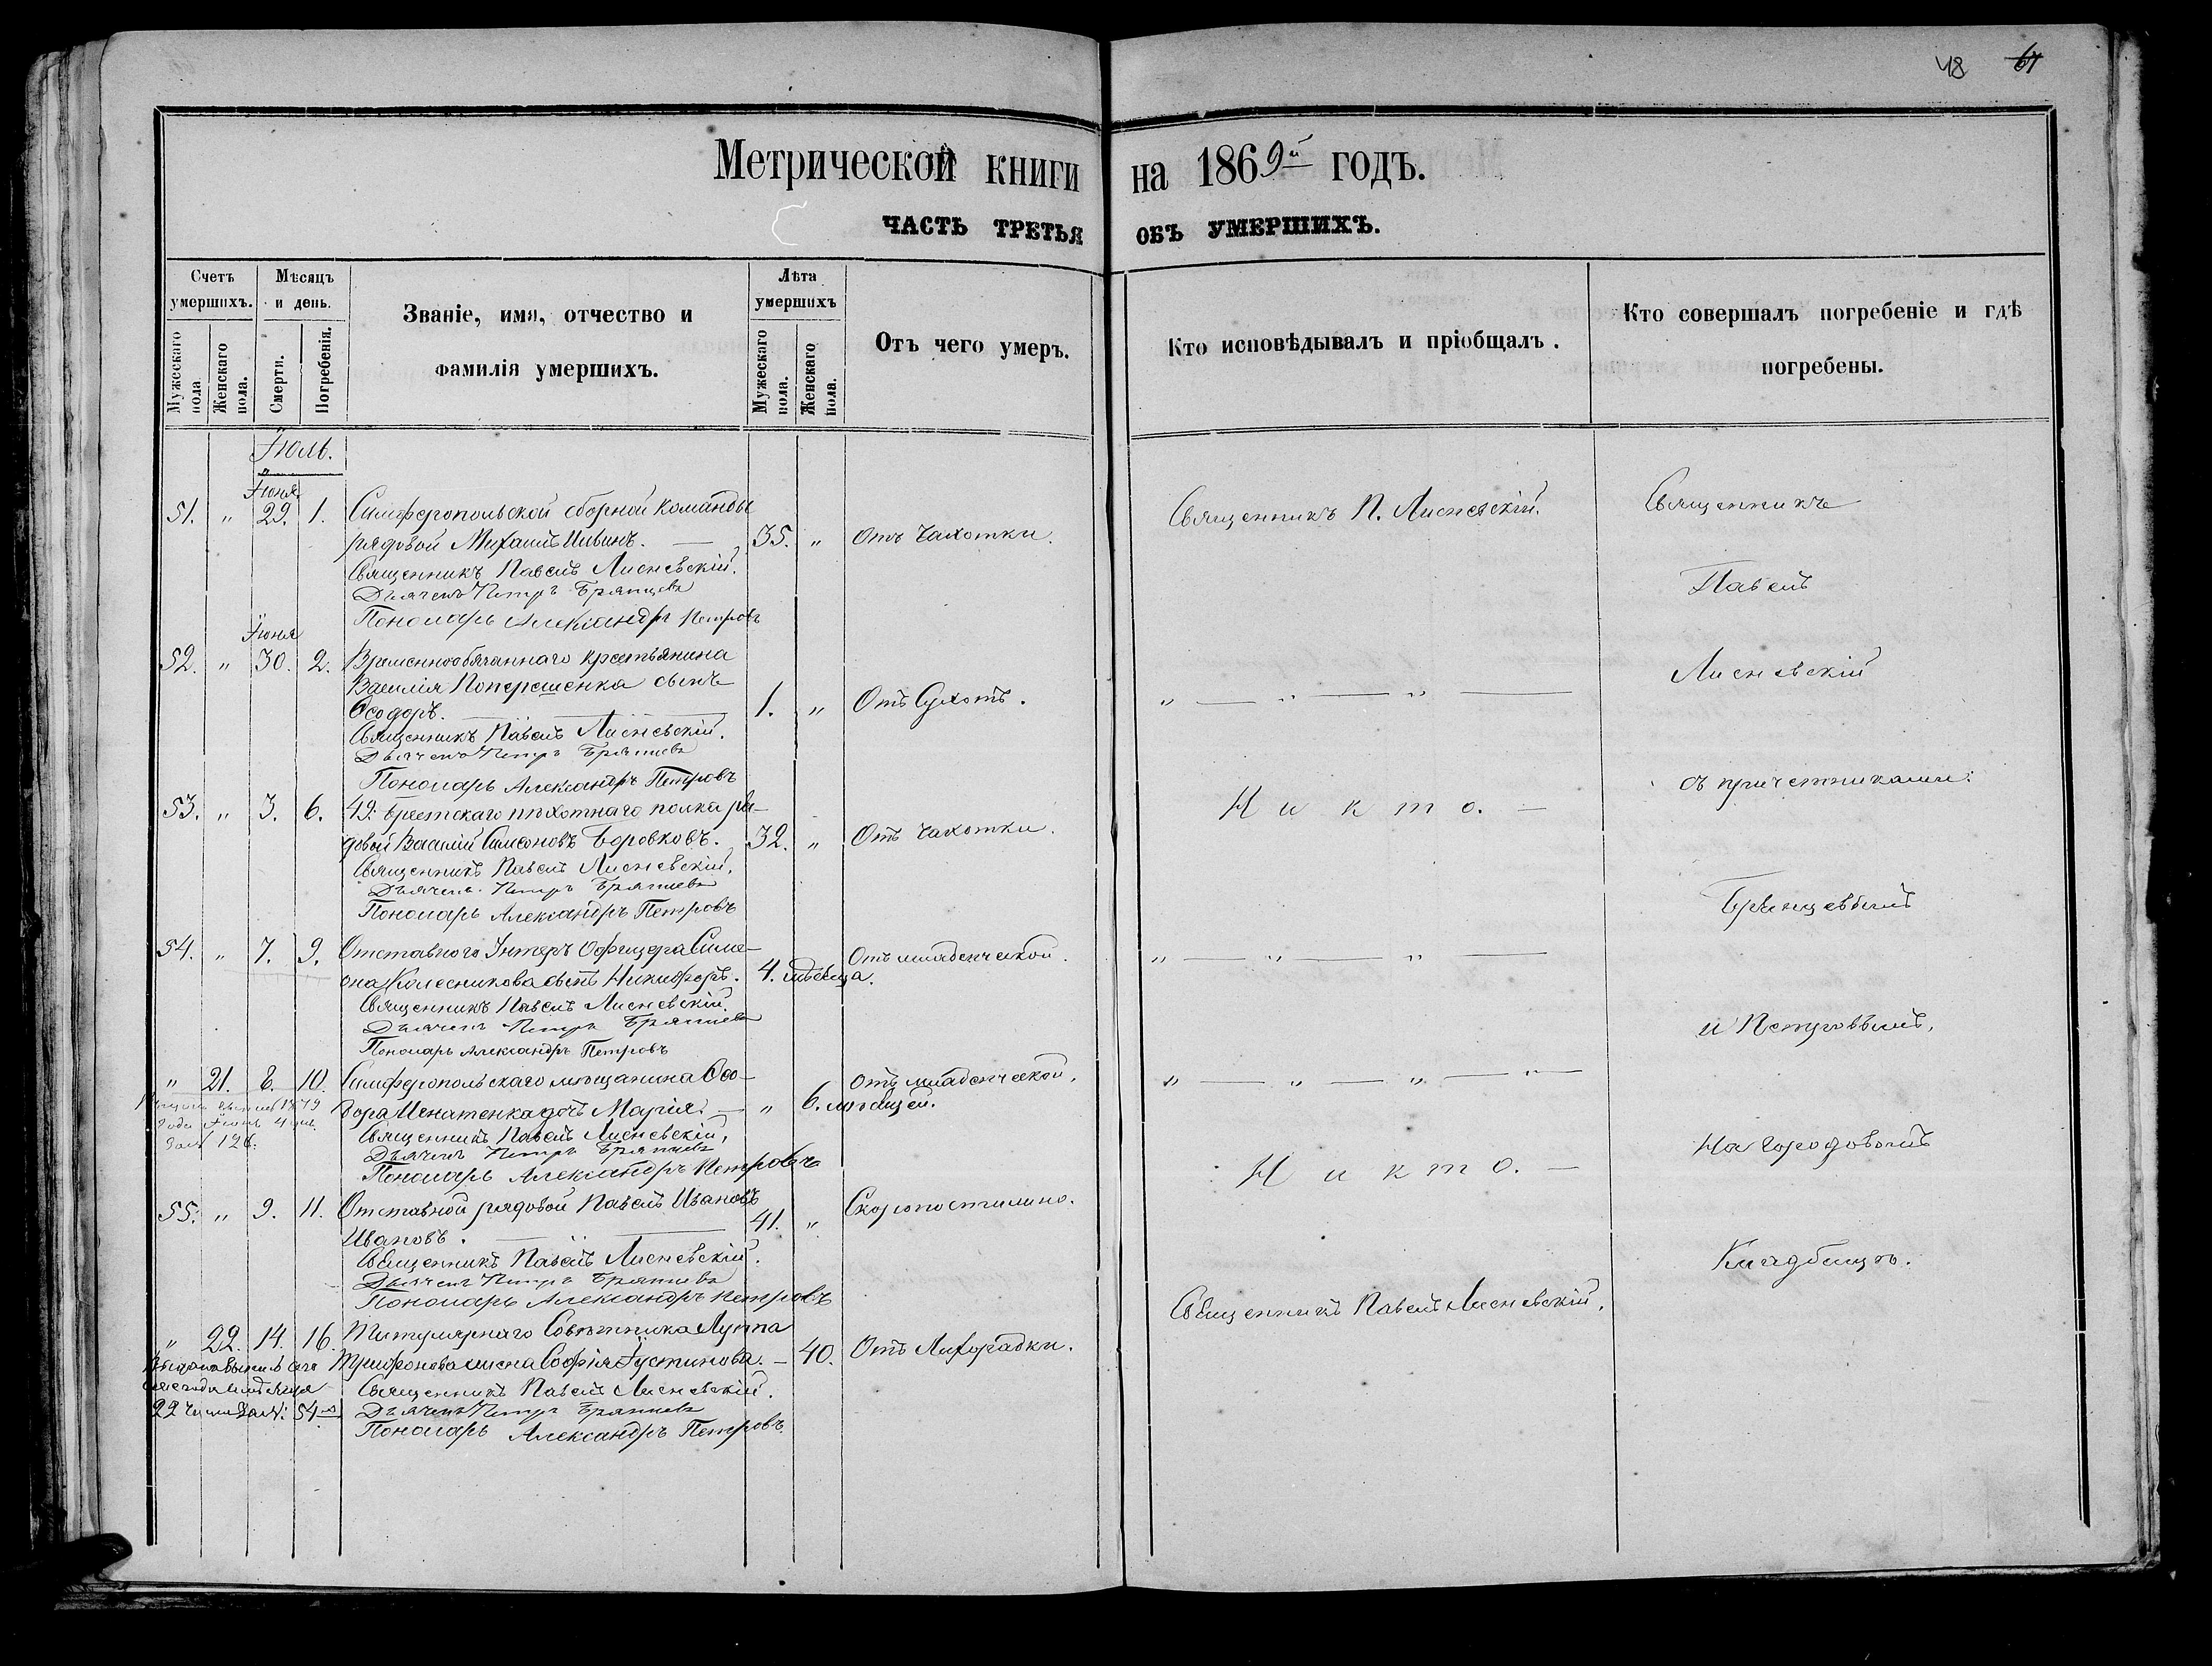 48 61
Метрической книги на 1869й годъ.
ЧАСТЬ ТРЕТЬЯ ОБЪ УМЕРШИХЪ.
Счетъ умершихъ.
Мужескаго пола.
Женскаго пола.
Мѣсяцъ и день.
Смерти.
Погребенія.
Званіе, имя, отчество и фамилія умершихъ.
Лѣта умершихъ
Мужескаго пола.
Женскаго пола.
Отъ чего умеръ.
Кто исповѣдывалъ и пріобщалъ.
Кто совершалъ погребеніе и гдѣ погребены.
Іюль.
Іюня
51. " 29. 1. Симферопольской сборной команды
рядовой Михаилъ Ильинъ. — 35. " Отъ Чахотки.
Священникъ П. Лисневскій.
Священникъ Павелъ Лисневскій.
Дьячекъ Петръ Брянцевъ
Пономарь Александръ Петровъ
Іюня
52. " 30. 2. Временнообязаннаго крестьянина
Василія Поперешенка сынъ
Ѳеодоръ. — 1. " Отъ Сухотъ.
" — " — " —
Священникъ Павелъ Лисневскій.
Дьячекъ Петръ Брянцевъ
Пономарь Александръ Петровъ
53. " 3. 6. 49. Брестскаго пѣхотнаго полка ря-
довой Василій Симеоновъ Боровковъ. 32. " Отъ Чахотки.
Никто. —
Священникъ Павелъ Лисневскій.
Дьячекъ Петръ Брянцевъ
Пономарь Александръ Петровъ
54. " 7. 9. Отставного Унтеръ Офицера Симе-
она Колесникова сынъ Никифоръ. 4. мѣсяца. Отъ младенческой.
" — " — " —
Священникъ Павелъ Лисневскій.
Дьячекъ Петръ Брянцевъ
Пономарь Александръ Петровъ
" 21. 8. 10. Симферопольскаго мѣщанина Ѳео-
дора Игнатенка дочь Марія. — " 6. мѣсяцей. Отъ младенческой.
" — " — " — " —
1879
года Іюнь 4 дня.
за № 126.
Священникъ Павелъ Лисневскій.
Дьячекъ Петръ Брянцевъ
Пономарь Александръ Петровъ
55. " 9. 11. Отставной рядовой Павелъ Ивановъ
Ивановъ. — 41. " Скоропостижно.
Никто. —
Священникъ Павелъ Лисневскій.
Дьячекъ Петръ Брянцевъ
Пономарь Александръ Петровъ
" 22. 14. 16. Титулярнаго Совѣтника Луппа
Трифонова жена Софія Іустинова. — 40. Отъ Лихорадки.
Священникъ Павелъ Лисневскій.
22 числа за №: 54
Священникъ Павелъ Лисневскій.
Дьячекъ Петръ Брянцевъ
Пономарь Александръ Петровъ.
Священникъ
Павелъ
Лисневскій
съ причетниками:
Брянцевымъ
и Петровымъ,
На городовомъ
Кладбищѣ.